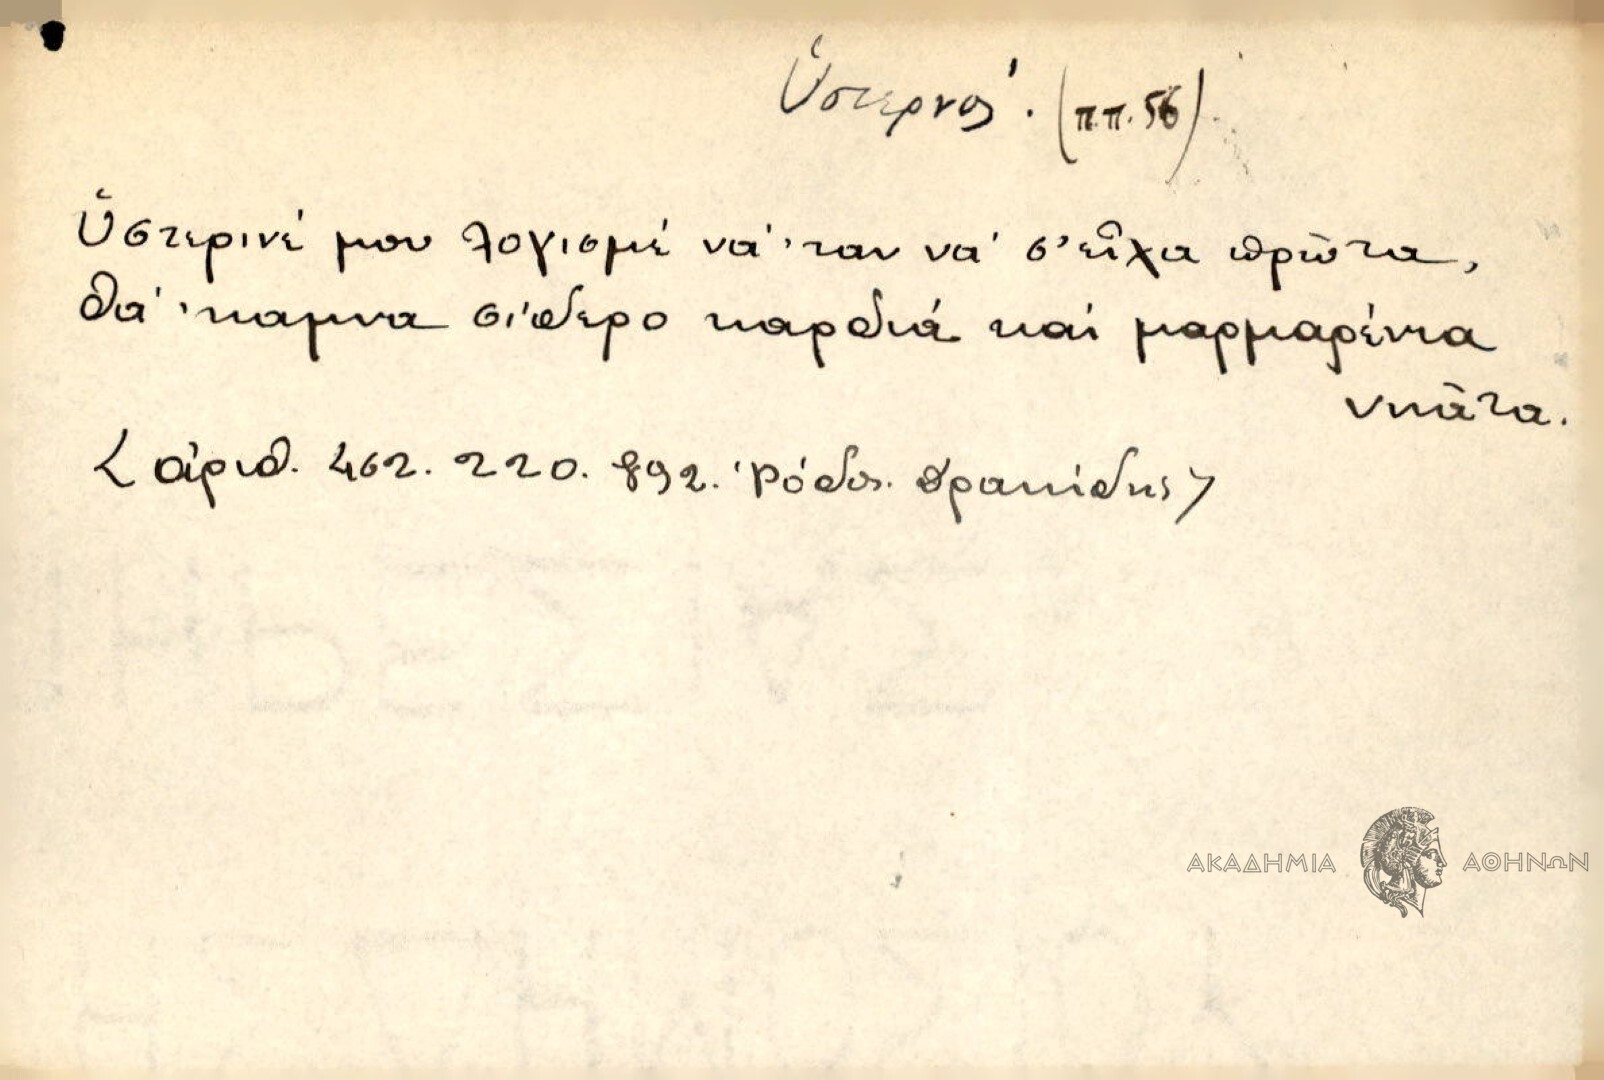 Ὑστερνός. (π.π. 56)
Ὑστερινέ μου λογισμέ νά 'ταν νά σ' εἶχα πρῶτα,
θά 'καμνα σίδερο καρδιά καί μαρμαρένια
νιᾶτα.
< ἀριθ. 462. 220. 892. Ῥόδος. Δρακίδης >
ΑΚΑΔΗΜΙΑ ΑΘΗΝΩΝ